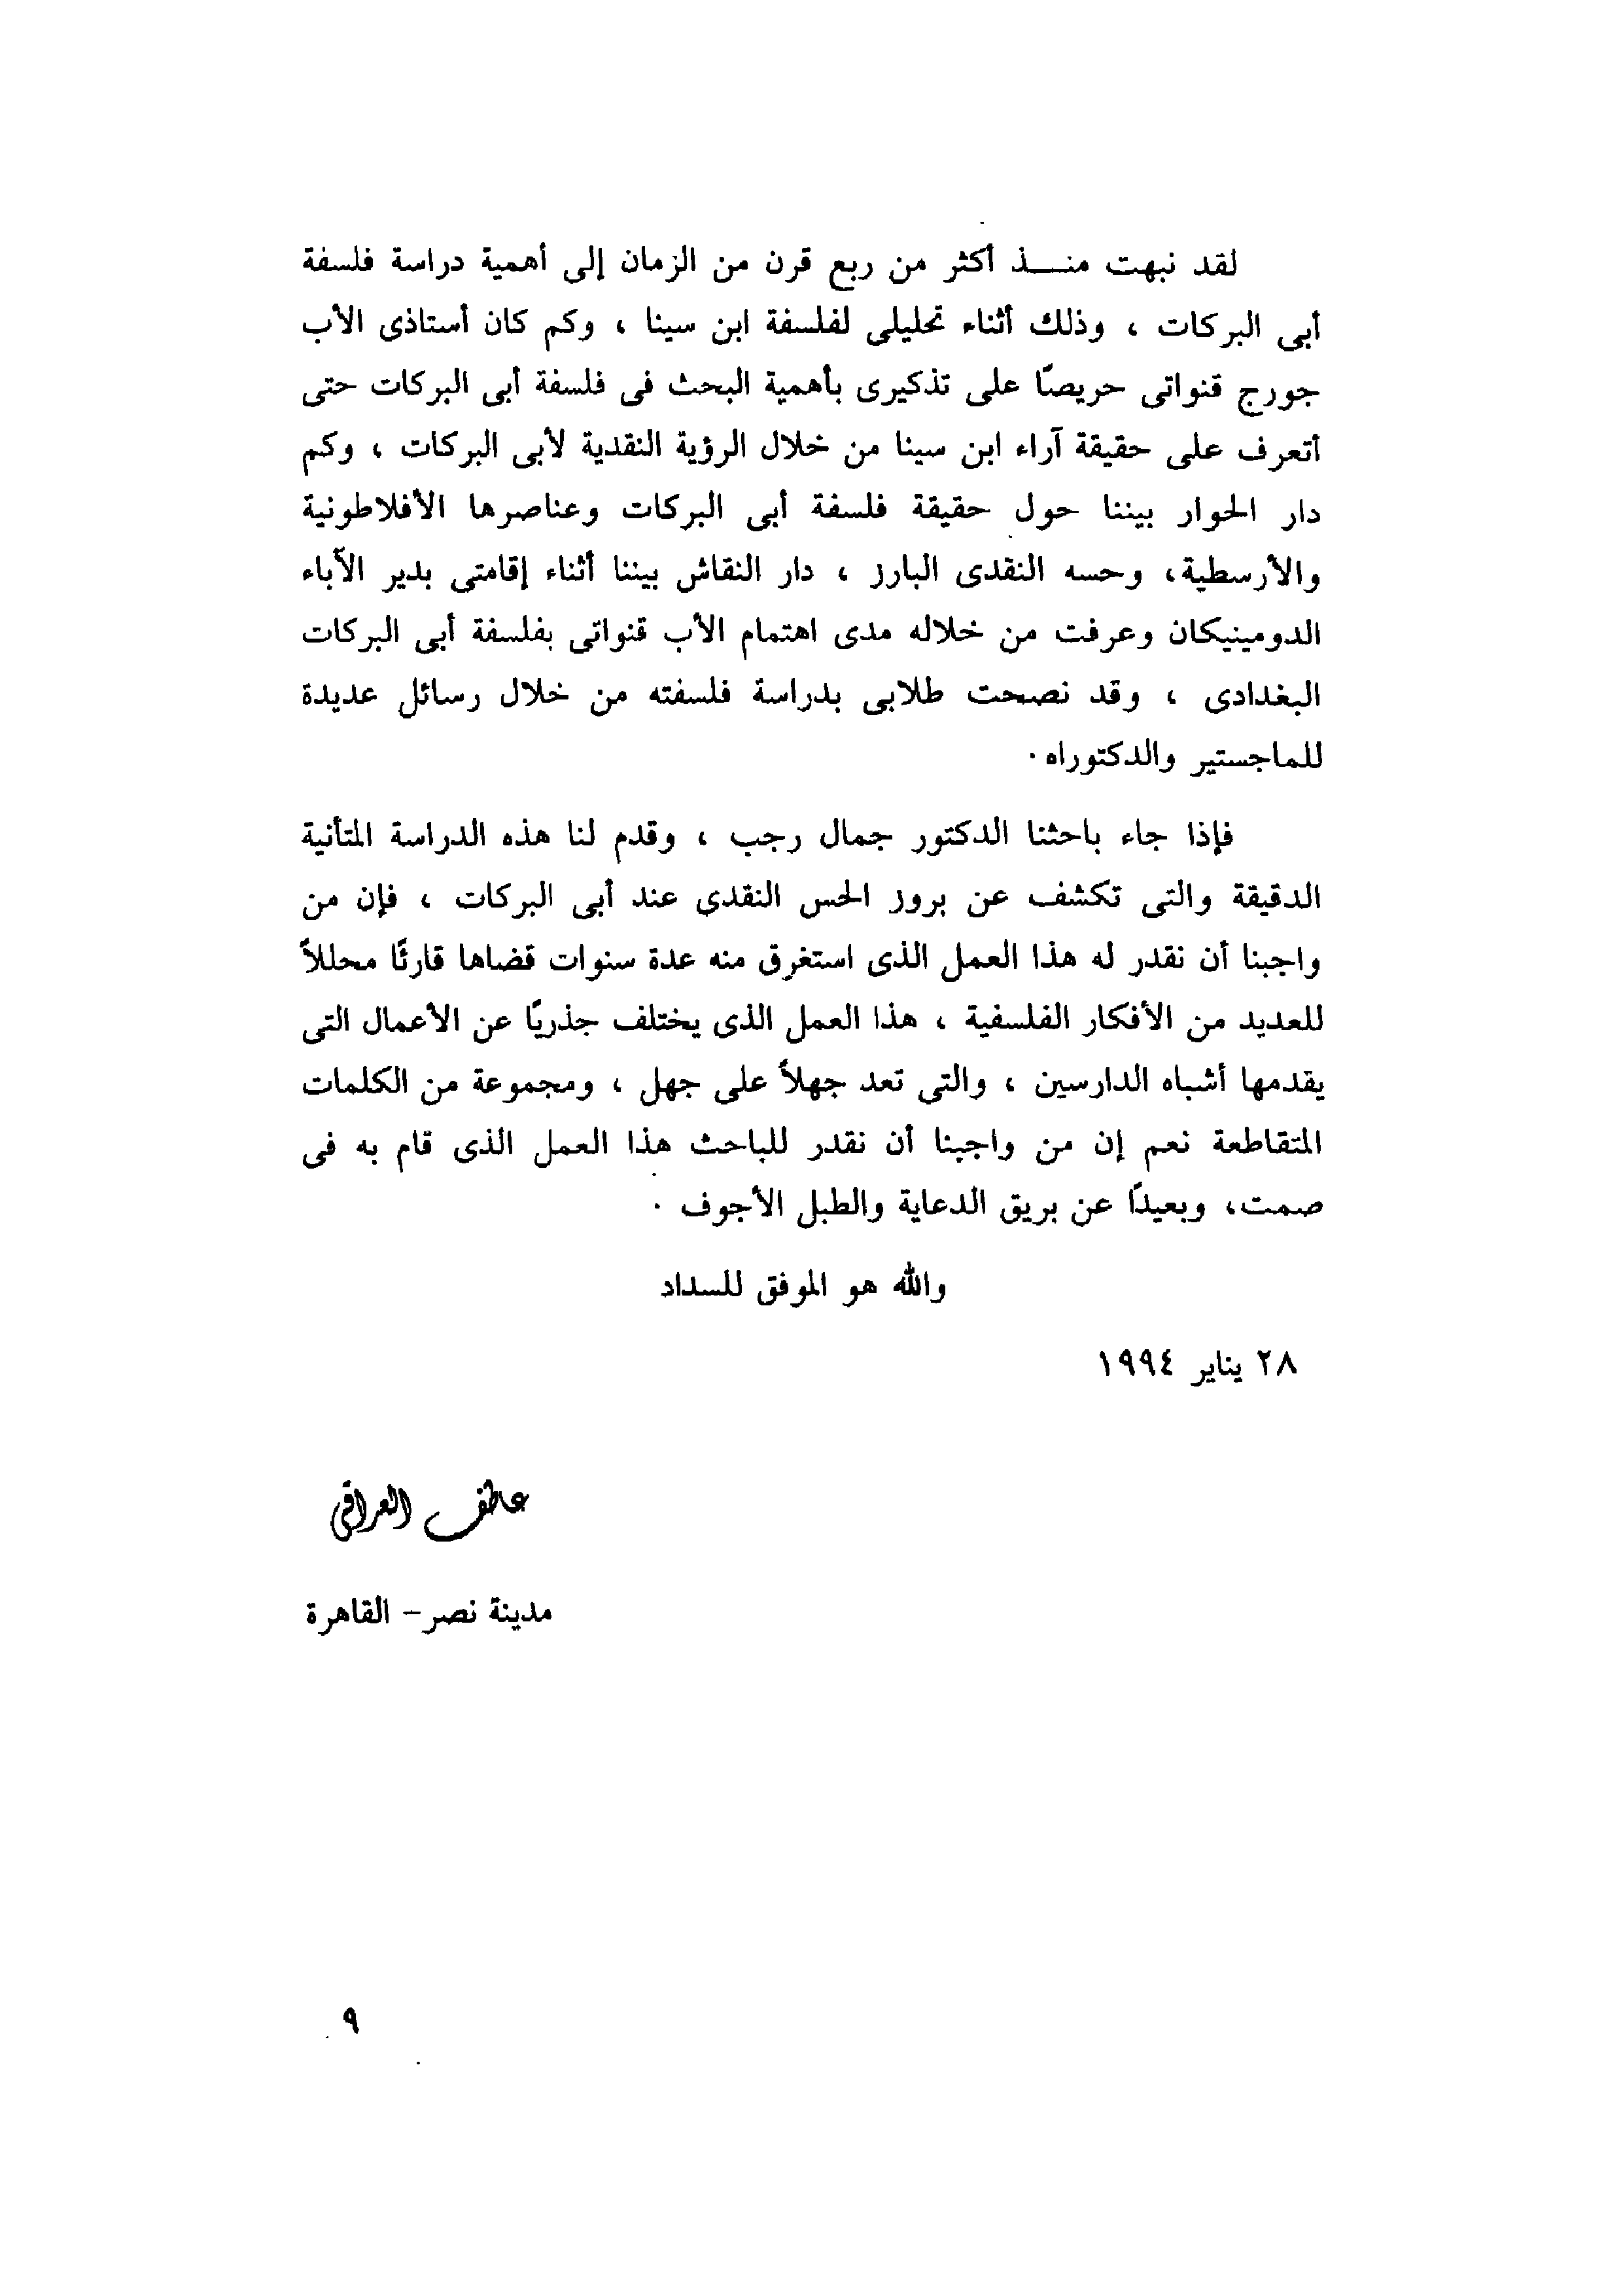 لقد نبهت منـــذ أكثر من ربع قرن من الزمان إلى أهمية دراسة فلسفة
أبى البركات ، وذلك أثناء تحليلى لفلسفة ابن سينا ، وكم كان أستاذى الأب
جورج قنواتى حريصًا على تذكيرى بأهمية البحث فى فلسفة أبى البركات حتى
أتعرف على حقيقة آراء ابن سينا من خلال الرؤية النقدية لأبى البركات ، وكم
دار الحوار بيننا حول حقيقة فلسفة أبى البركات وعناصرها الأفلاطونية
والأرسطية، وحسه النقدى البارز ، دار النقاش بيننا أثناء إقامتى بدير الآباء
الدومينيكان وعرفت من خلاله مدى اهتمام الأب قنواتى بفلسفة أبى البركات
البغدادى ، وقد نصحت طلابى بدراسة فلسفته من خلال رسائل عديدة
للماجستير والدكتوراه .
فإذا جاء باحثنا الدكتور جمال رجب ، وقدم لنا هذه الدراسة المتأنية
الدقيقة والتى تكشف عن بروز الحس النقدى عند أبى البركات ، فإن من
واجبنا أن نقدر له هذا العمل الذى استغرق منه عدة سنوات قضاها قارئًا محللاً
للعديد من الأفكار الفلسفية ، هذا العمل الذى يختلف جذريًا عن الأعمال التى
يقدمها أشباه الدارسين ، والتى تعد جهلاً على جهل ، ومجموعة من الكلمات
المتقاطعة نعم إن من واجبنا أن نقدر للباحث هذا العمل الذى قام به فى
صمت، وبعيدًا عن بريق الدعاية والطبل الأجوف .
والله هو الموفق للسداد
٢٨ يناير ١٩٩٤
عاطف العراقى
مدينة نصر- القاهرة
٩